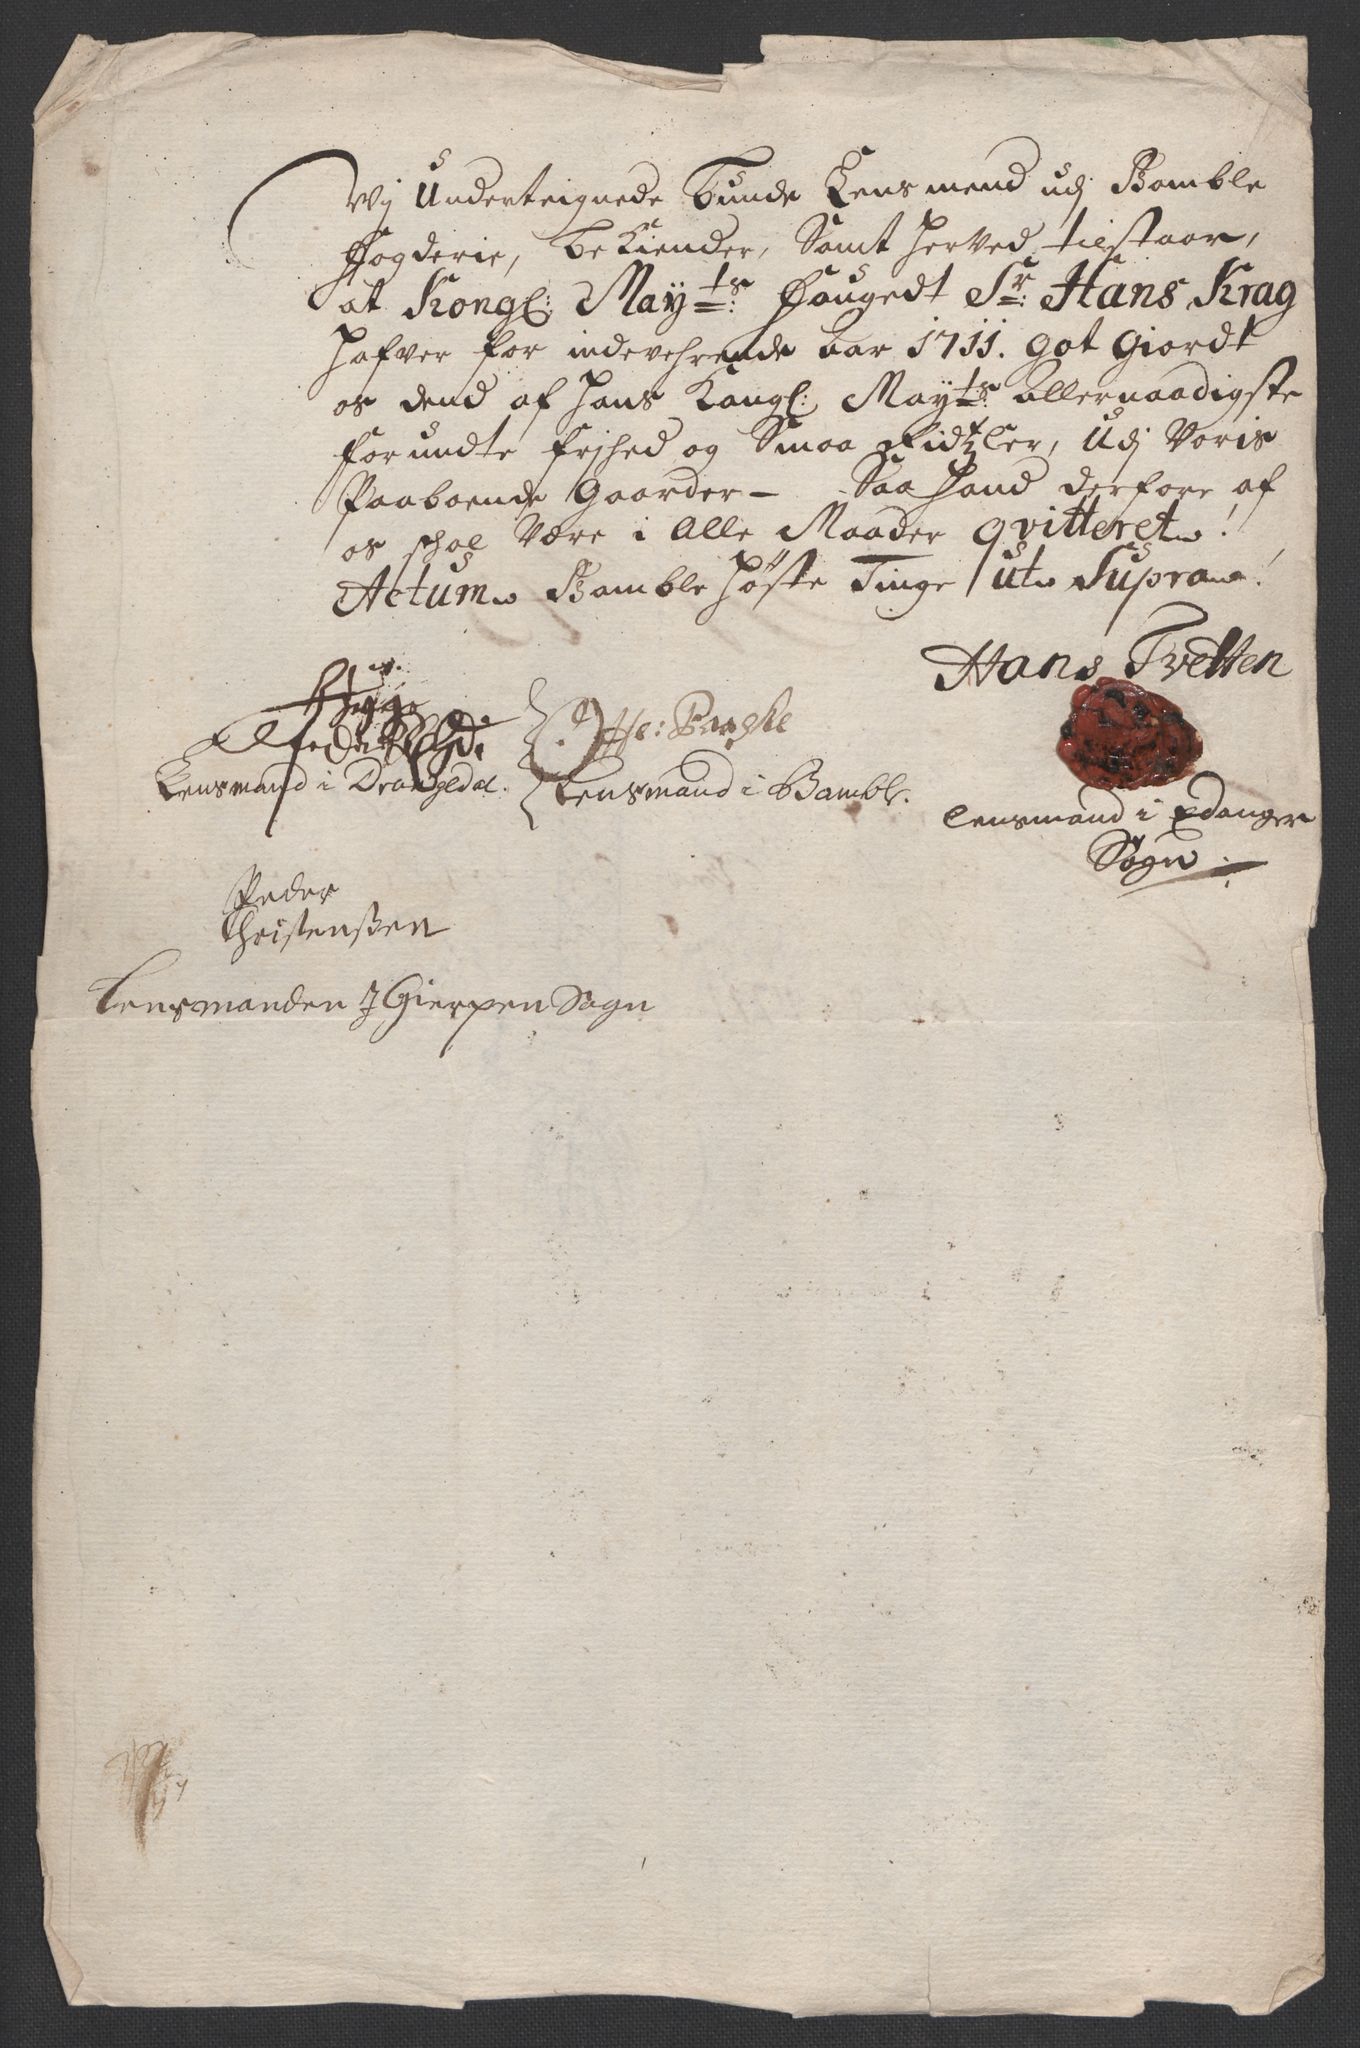 Wj Underteignede Bunde Lensmend udj Bamble
Fogderie, beKiender, Samt herved tilstaar,
at Kongl: May:ts Fougedt Sr: Hans Krag
hafver for indeverende aar 1711. got Giordt
os dend af hans Kongl: May:ts allernaadigste
forundte frjhed og Smaa Sidtzler, Udj Voris
Paaboende Gaarder – Saa hand derfore af
os schal Være i Alle Maader qvitteret!
Actum Bamble Høste Tinge ut Supra!
Hans Tvetten
Lensmand i Drangedal.
Lensmand i Bamble.
Lensmand i Edanger
Sogn
Peder
Christenßen
Lensmanden J Gierpen Sogn